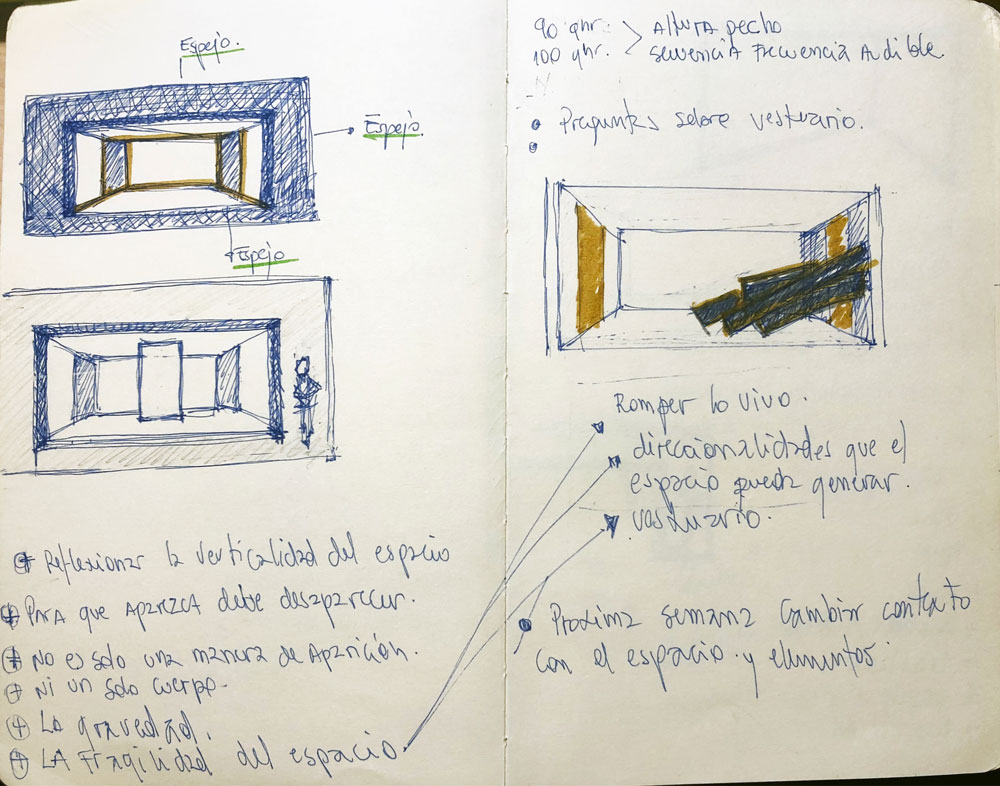 Espejo.
Espejo.
Espejo
⊕ Reflexionar la verticalidad del espacio
⊕ PARA que APAREZCA debe desaparecer.
⊕ No es solo una manera de Aparición.
⊕ Ni un solo cuerpo.
⊕ LA gravedad.
⊕ LA Fragilidad del espacio.
90 qhr. > Altura pecho
100 qhr. Frecuencia Audible.
• Preguntas sobre vestuario.
•
Romper lo vivo.
direccionalidades que el
espacio pueda generar.
vestuario.
• Proxima semana Cambiar contexto
con el espacio y elementos.